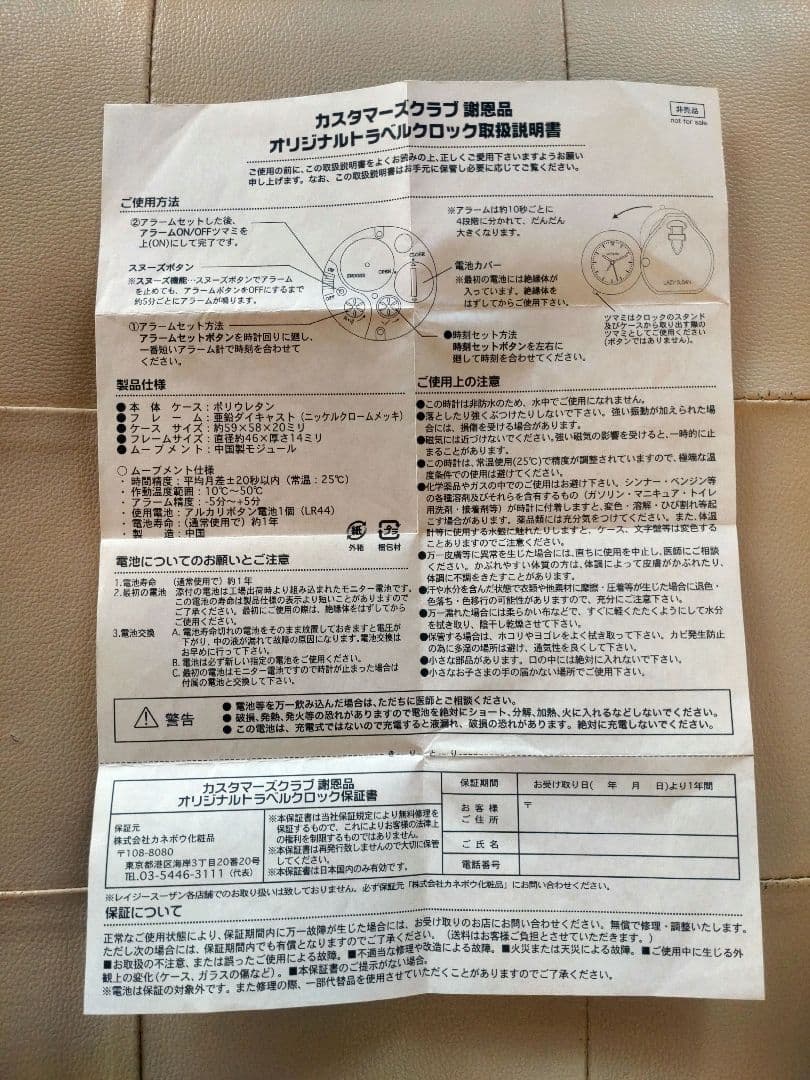 カスタマーズクラブ 謝恩品
オリジナルトラベルクロック取扱説明書
非売品
not for sale
ご使用の前に、この取扱説明書をよくお読みの上、正しくご愛用下さいますようお願い
申し上げます。なお、この取扱説明書はお手元に保管し必要に応じてご覧ください。
ご使用方法
②アラームセットした後、
アラームON/OFFツマミを
上(ON)にして完了です。
スヌーズボタン
※スヌーズ機能…スヌーズボタンでアラーム
を止めても、アラームボタンをOFFにするまで
約5分ごとにアラームが鳴ります。
①アラームセット方法
アラームセットボタンを時計回りに廻し、
一番短いアラーム針で時刻を合わせて
ください。
SNOOZE
OPEN
CLOSE
※アラームは約10秒ごとに
4段階に分かれて、だんだん
大きくなります。
電池カバー
※最初の電池には絶縁体が
入っています。絶縁体を
はずしてからご使用下さい。
●時刻セット方法
時刻セットボタンを左右に
廻して時刻を合わせください。
LAZY SUSAN
ツマミはクロックのスタンド
及びケースから取り出す際の
ツマミとしてご使用ください
(ボタンではありません。)
製品仕様
●本体ケース：ポリウレタン
●フレーム：亜鉛ダイキャスト（ニッケルクロームメッキ）
●ケースサイズ：約59×58×20ミリ
●フレームサイズ：直径約46×厚さ14ミリ
●ムーブメント：中国製モジュール
○ムーブメント仕様
・時間精度：平均月差±20秒以内（常温：25℃）
・作動温度範囲：10℃～50℃
・アラーム精度：-5分～+5分
・使用電池：アルカリボタン電池1個（LR44）
・電池寿命：（通常使用で）約1年
・製造：中国
紙
外格
プラ
梱包材
電池についてのお願いとご注意
1.電池寿命 （通常使用で）約1年
2.最初の電池 添付の電池は工場出荷時より組み込まれたモニター電池です。
この電池の寿命は製品仕様の表示より短いことがありますので
ご了承ください。最初にご使用の際は、絶縁体をはずしてから
ご使用ください。
3.電池交換 A. 電池寿命切れの電池をそのまま放置しておきますと電圧が
下がり、中の液が漏れて故障の原因になります。電池交換は
お早めに行って下さい。
B. 電池は必ず新しい指定の電池をご使用ください。
C. 最初の電池はモニター電池ですので時計が止まった場合は
付属の電池と交換して下さい。
ご使用上の注意
●この時計は非防水のため、水中でご使用になれません。
●落としたり強くぶつけたりしないで下さい。強い振動が加えられた場
合には、損傷を受ける場合があります。
●磁気には近づけないでください。強い磁気の影響を受けると、一時的に止
まることがあります。
●この時計は、常温使用(25℃)で精度が調整されていますので、極端な温
度条件での使用は避けてください。
●化学薬品やガスの中でのご使用はお避け下さい。シンナー・ベンジン等
の各種溶剤及びそれらを含有するもの（ガソリン・マニキュア・トイレ
用洗剤・接着剤等）が時計に付着しますと、変色・溶解・ひび割れ等起
こす場合があります。薬品類には充分気をつけてください。また、体温
計等に使用する水銀に触れたりしますと、ケース、文字盤等は変色する
ことありますのでご注意ください。
●万一皮膚等に異常を生じた場合には、直ちに使用を中止し、医師にご相談
ください。かぶれやすい体質の方は、体調によって皮膚がかぶれたり、
体調に不調をきたすことがあります。
●汗や水分を含んだ状態で衣類や他素材に摩擦・圧着等が生じた場合に退色・
色落ち・色移行の可能性がありますので、充分にご注意下さい。
●万一濡れた場合には柔らかい布などで、すぐに軽くたたくようにして水分
を拭き取り、陰干し乾燥させて下さい。
●保管する場合は、ホコリやヨゴレをよく拭き取って下さい。カビ発生防止
の為に多湿の場所は避け、通気性を良くして下さい。
●小さな部品があります。口の中には絶対に入れないで下さい。
●小さなお子さまの手の届かない場所でご使用下さい。
警告
●電池等を万一飲み込んだ場合は、ただちに医師とご相談ください。
●破損、発熱、発火等の恐れがありますので電池を絶対にショート、分解、加熱、火に入れるなどしないでください。
●この電池は、充電式ではないので充電すると液漏れ、破損の恐れがあります。絶対に充電しないでください。
きりとり
カスタマーズクラブ 謝恩品
オリジナルトラベルクロック保証書
保証元
株式会社カネボウ化粧品
〒108-8080
東京都港区海岸3丁目20番20号
TEL.03-5446-3111（代表）
※本保証書は当社保証規定により無料修理を
保証するもので、これによりお客様の法律上
の権利を制限するものではありません。
※本保証書は再発行致しませんので大切に保管
してください。
※本保証書は日本国内のみ有効です。
保証期間
お受け取り日（ 年 月 日)より1年間
お客様
ご住所
〒
ご氏名
電話番号
※レイジースーザン各店舗でのお取り扱いは致しておりません。必ず保証元「株式会社カネボウ化粧品」にお問い合わせください。
保証について
正常なご使用状態により、保証期間内に万一故障が生じた場合には、お受け取りのお店にお問い合わせください。無償で修理・調整いたします。
ただし次の場合には、保証期間内でも有償となりますのでご了承ください。（送料はお客様ご負担とさせていただきます。）
■お取扱の不注意、または誤ったご使用による故障。■不適当な修理や改造による故障。■火災または天災による故障。■ご使用中に生じる外
観上の変化(ケース、ガラスの傷など）。■本保証書のご提示がない場合。
※電池は保証の対象外です。また修理の際、一部代替品を使用させていただくことがありますのでご了承ください。